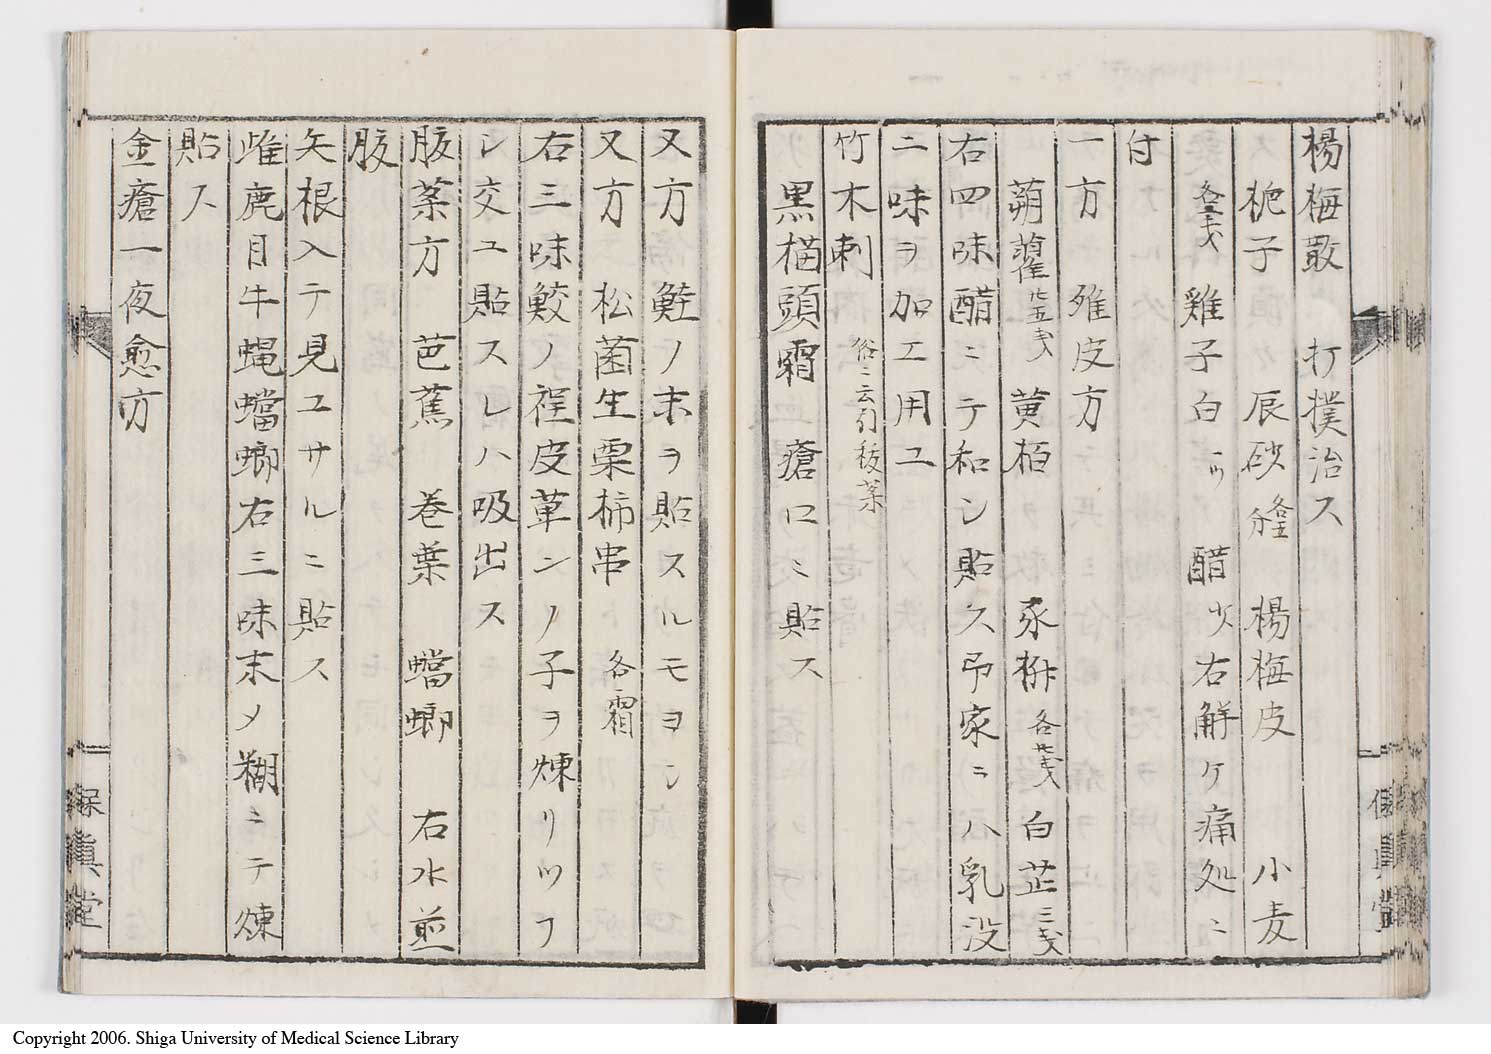 楊梅散 打撲治ス
梔子 辰砂各壹分 楊梅皮 小麦
各三戔 雞子白ツ 醋少右解ケ痛処ニ
付
一方 雞皮方
蒴藋廿五戔 黄栢 豕椒各廿戔 白芷三戔
右四味醋ニテ和シ貼ス吊家ニハ乳没
二味ヲ加エ用ユ
竹木刺俗ニ云引移薬
黒楢頭霜 瘡口ニ貼ス
又方 鮭ノ末ヲ貼スルモヨシ
又方 松菌生栗柿串各霜
右三味鮫ノ裎皮草シノ子ヲ煉リツフ
シ交ユ貼スレハ吸出ス
服薬方 芭蕉 巻葉 蟷螂 右水煎
服
矢根入テ見ユサルニ貼ス
雌鹿目牛蝿蟷螂右三味末メ糊ニテ煉
貼ス
金瘡一夜愈方
保眞堂
保眞堂
Copyright 2006. Shiga University of Medical Science Library